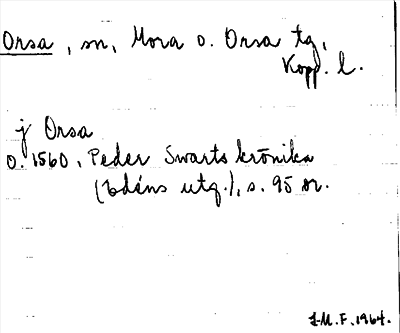 Orsa, sn, Mora o. Orsa tg,
Kopp. l.
j Orsa
o. 1560, Peder Swarts krönika
(Edéns utg.), s. 95 or.
J.M.F. 1964.